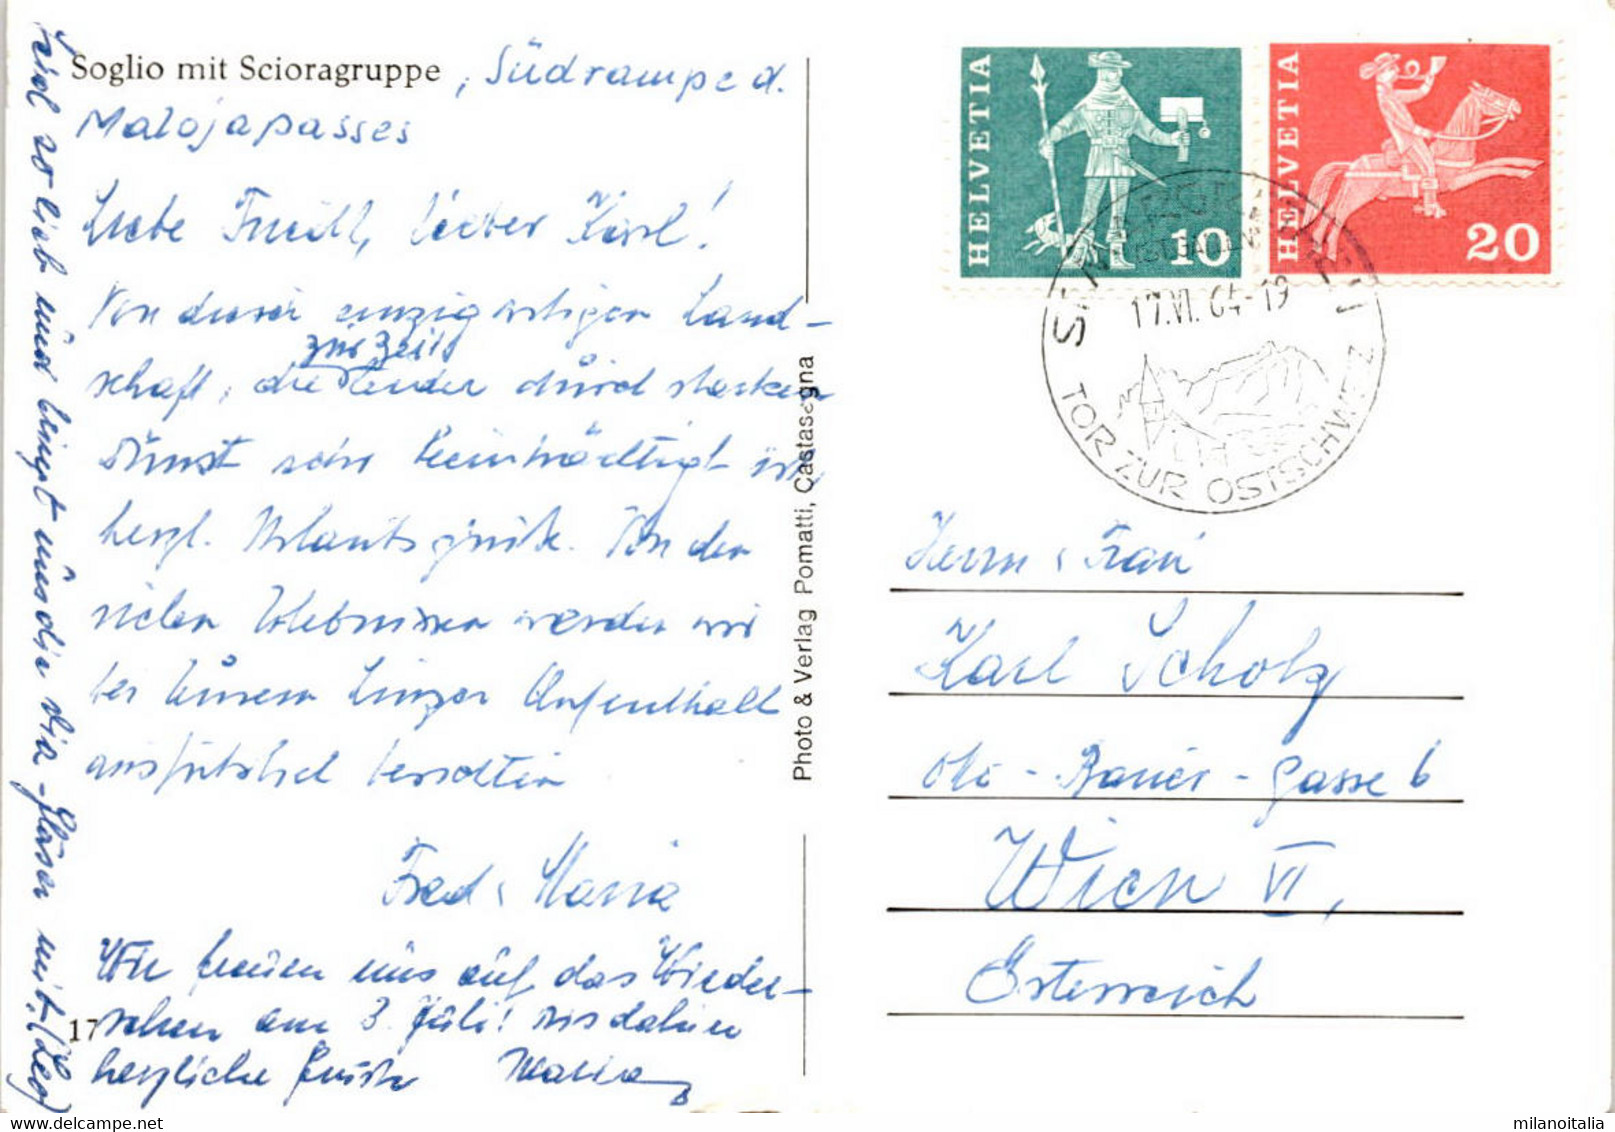 Soglio mit Scioragruppe, Südrampe d.
Malojapasses
Liebe Friedl, lieber Karl!
Von dieser einzigartigen Land-
schaft, die zur Zeit leider durch starken
Dunst sehr beeinträchtigt ist,
herzl. Urlaubsgrüße. Von den
vielen Erlebnissen werden wir
bei Eurem Linzer Aufenthalt
ausführlich berichten
Fred u. Maria
Wir freuen uns auf das Wieder-
sehen am 3. Juli! Bis dahin
herzliche Grüße Maria
17
Seid so lieb und bringt uns die Dia-Gläser mit.
Photo & Verlag Pomatti, Castasegna
HELVETIA
10
HELVETIA
20
17.VI.64-19
TOR ZUR OSTSCHWEIZ
Herrn u. Frau
Karl Scholz
Otto-Bauer-Gasse 6
Wien VI,
Österreich
milanoitalia